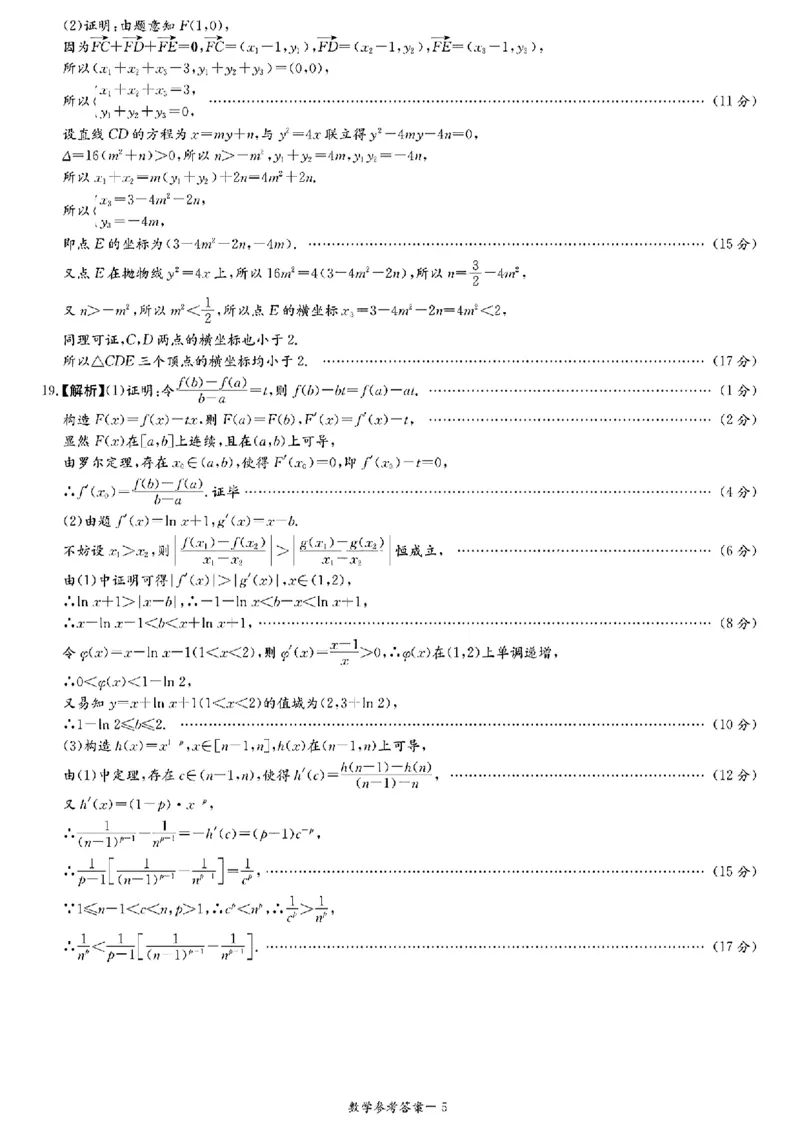 (2)证明:由题意知 F(1,0),
因为FC+FD+FE=0,FC=(x₁-1,y₁),FD=(x₂-1,y₂),FE=(x₃-1,y₃),
所以(x₁+x₂+x₃-3,y₁+y₂+y₃)=(0,0),
所以{x₁+x₂+x₃=3, y₁+y₂+y₃=0, ……(11 分)
设直线 CD 的方程为 x=my+n,与 y²=4x 联立得 y²-4my-4n=0,
Δ=16(m²+n)>0,所以 n>-m²,y₁+y₂=4m,y₁y₂=-4n,
所以 x₁+x₂=m(y₁+y₂)+2n=4m²+2n.
所以{x₃=3-4m²-2n, y₃=-4m,
即点 E 的坐标为(3-4m²-2n,-4m). ……(15 分)
又点 E 在抛物线 y²=4x 上,所以 16m²=4(3-4m²-2n),所以 n=3/2-4m²,
又 n>-m²,所以 m²<1/2,所以点 E 的横坐标 x₃=3-4m²-2n=4m²<2,
同理可证,C,D 两点的横坐标也小于 2.
所以△CDE 三个顶点的横坐标均小于 2. ……(17 分)
19.【解析】(1)证明:令 (f(b)-f(a))/(b-a)=t,则 f(b)-bt=f(a)-at. ……(1 分)
构造 F(x)=f(x)-tx,则 F(a)=F(b),F′(x)=f′(x)-t, ……(2 分)
显然 F(x)在[a,b]上连续,且在(a,b)上可导,
由罗尔定理,存在 x₀∈(a,b),使得 F′(x₀)=0,即 f′(x₀)-t=0,
∴f′(x₀)=(f(b)-f(a))/(b-a).证毕 ……(4 分)
(2)由题 f′(x)=ln x+1,g′(x)=x-b.
不妨设 x₁>x₂,则|(f(x₁)-f(x₂))/(x₁-x₂)|>|(g(x₁)-g(x₂))/(x₁-x₂)|恒成立, ……(6 分)
由(1)中证明可得|f′(x)|>|g′(x)|,x∈(1,2),
∴ln x+1>|x-b|,∴-1-ln x<b-x<ln x+1,
∴x-ln x-1<b<x+ln x+1, ……(8 分)
令 φ(x)=x-ln x-1(1<x<2),则 φ′(x)=(x-1)/x>0,∴φ(x)在(1,2)上单调递增,
∴0<φ(x)<1-ln 2,
又易知 y=x+ln x+1(1<x<2)的值域为(2,3+ln 2),
∴1-ln 2≤b≤2. ……(10 分)
(3)构造 h(x)=x¹⁻ᵖ,x∈[n-1,n],h(x)在(n-1,n)上可导,
由(1)中定理,存在 c∈(n-1,n),使得 h′(c)=(h(n-1)-h(n))/((n-1)-n), ……(12 分)
又 h′(x)=(1-p)·x⁻ᵖ,
∴1/(n-1)ᵖ⁻¹-1/nᵖ⁻¹=-h′(c)=(p-1)c⁻ᵖ,
∴1/(p-1)[1/(n-1)ᵖ⁻¹-1/nᵖ⁻¹]=1/cᵖ, ……(15 分)
∵1≤n-1<c<n,p>1,∴cᵖ<nᵖ,∴1/cᵖ>1/nᵖ,
∴1/nᵖ<1/(p-1)[1/(n-1)ᵖ⁻¹-1/nᵖ⁻¹]. ……(17 分)
数学参考答案-5